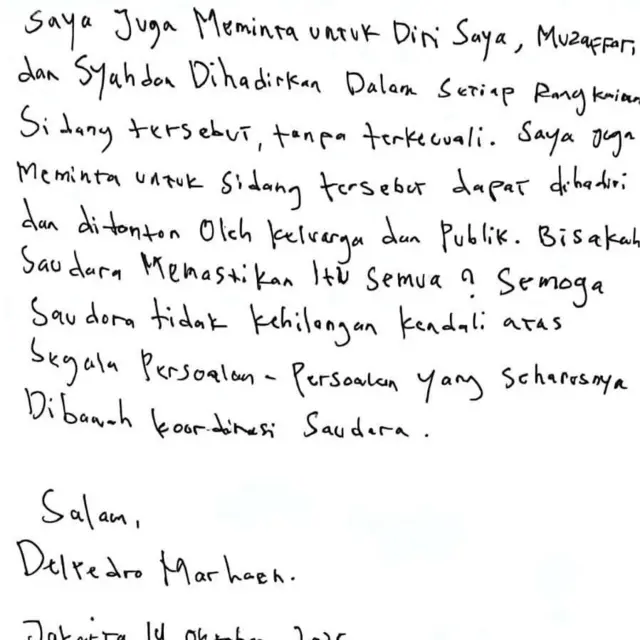 Saya Juga Meminta untuk Diri Saya, Muzaffar,
dan Syahdan Dihadirkan Dalam Setiap Rangkaian
Sidang tersebut, tanpa terkecuali. Saya juga
Meminta untuk Sidang tersebut dapat dihadiri
dan ditonton Oleh keluarga dan Publik. Bisakah
Saudara Memastikan Itu Semua? Semoga
Saudara tidak kehilangan kendali atas
Segala Persoalan-Persoalan yang Seharusnya
Dibawah koordinasi Saudara.
Salam,
Delpedro Marhaen.
Jakarta 14 Oktober 2025